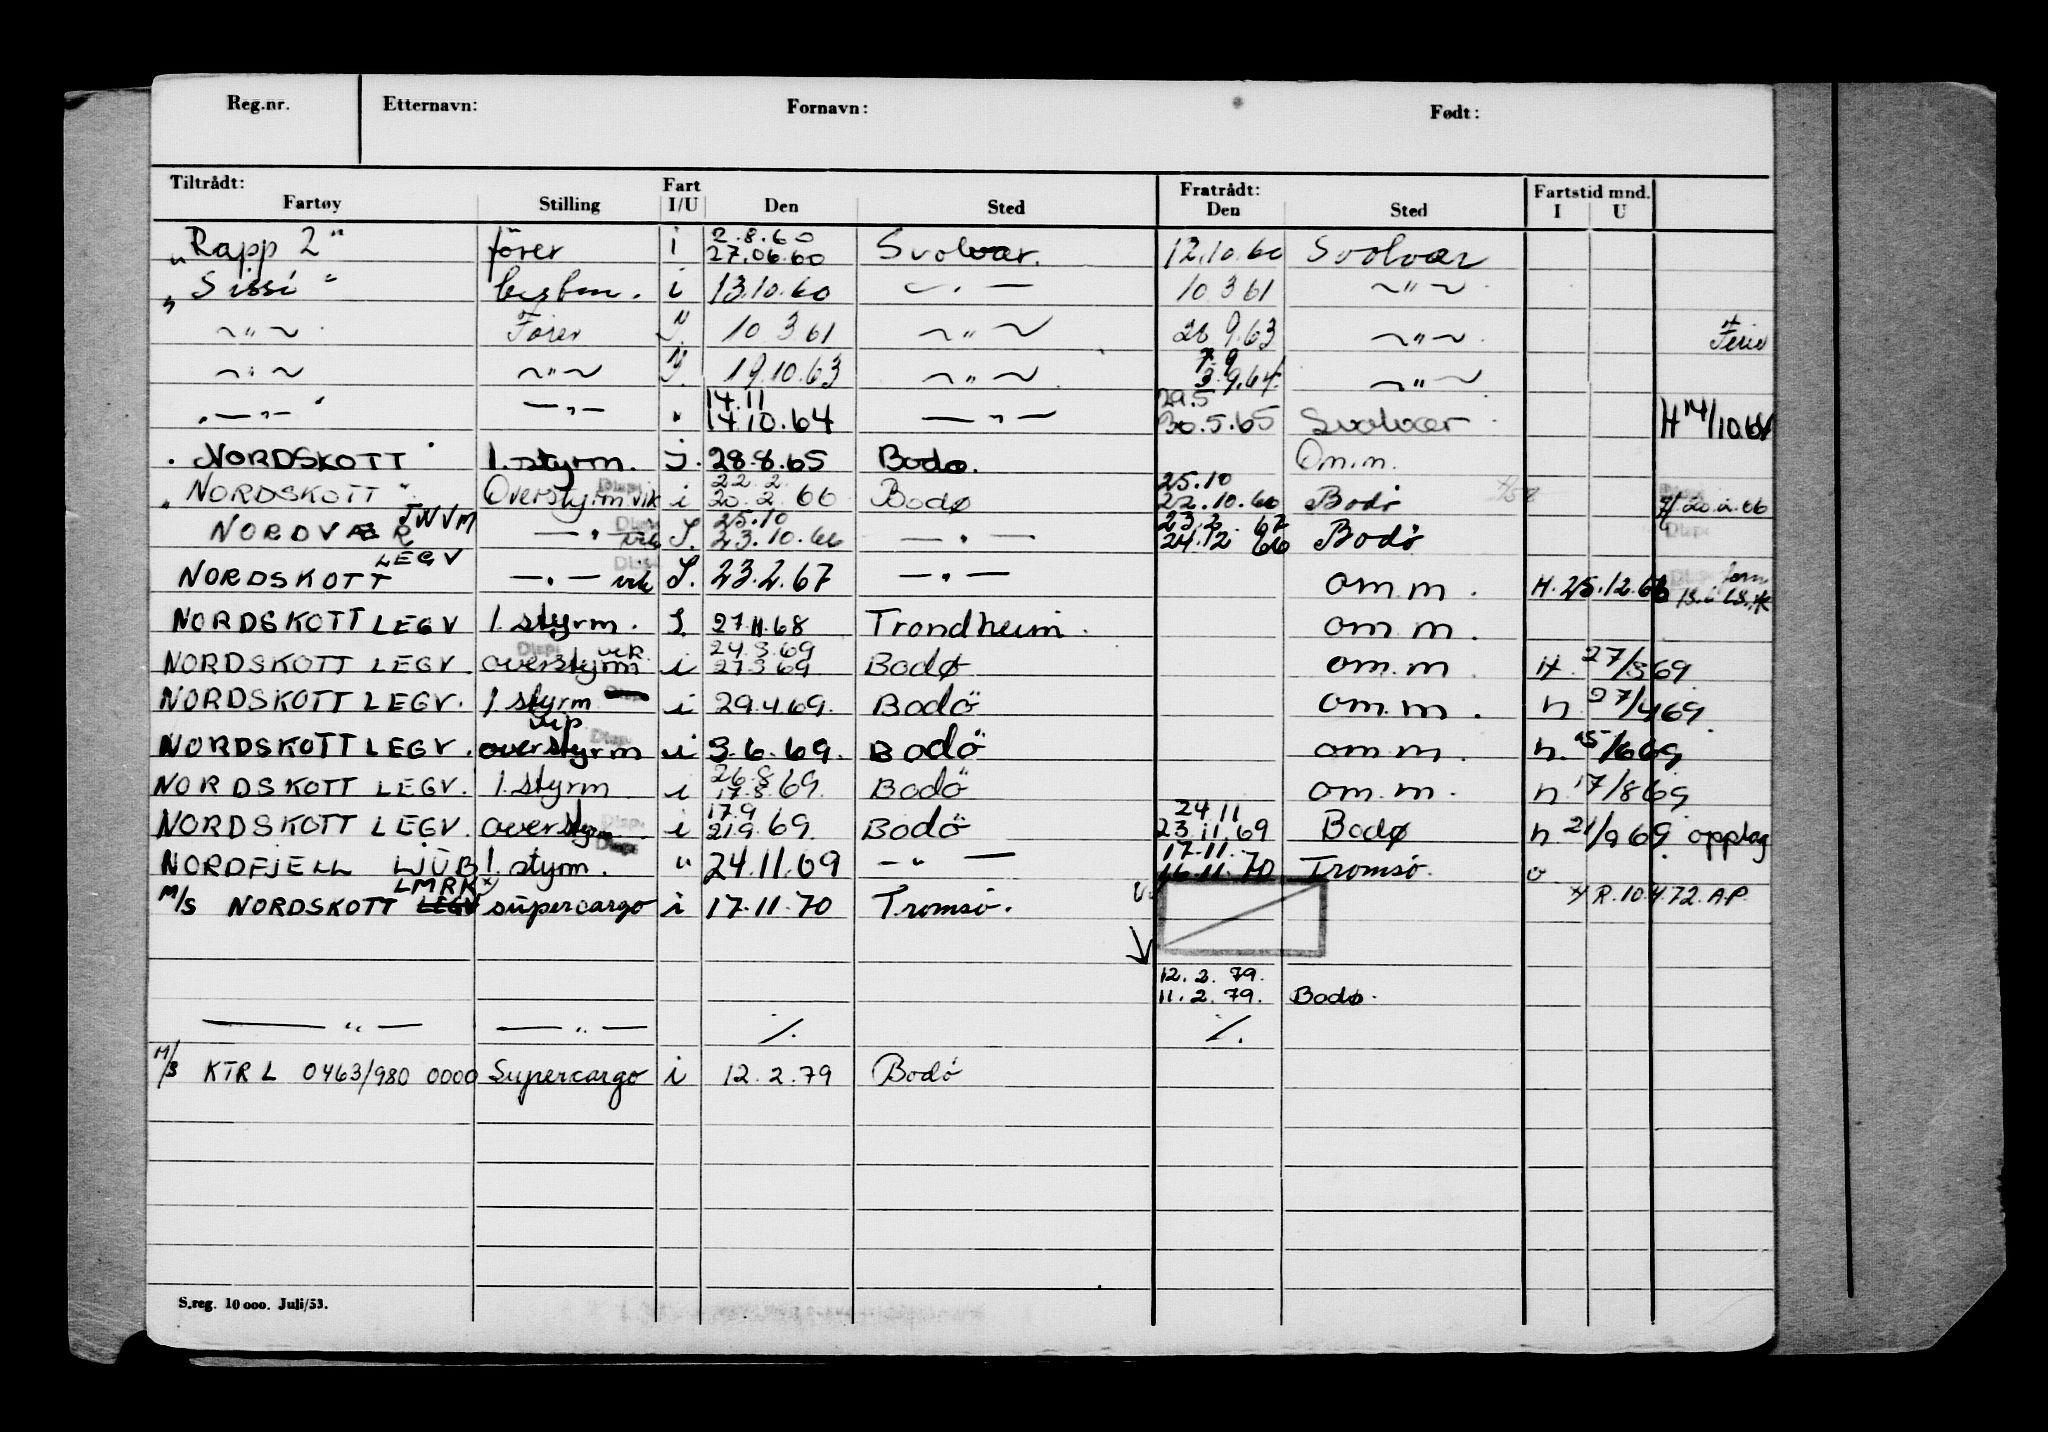 Reg.nr. Etternavn: Fornavn: Født:
Tiltrådt: Fart Fratrådt: Fartstid mnd.
Fartøy Stilling I/U Den Sted Den Sted I U
2.8.60
„Rapp 2" fører i 27.06.60 Svolvær. 12.10.60 Svolvær
„Sissi" i 13.10.60 —〃— 10 3 61 ~〃~
~〃~ Fører 10 3 61 ~〃~ 28 9.63 ~〃~ Ferie
7.9
~〃~ ~〃~ 19.10.63 ~〃~ 3.9.64 ~〃~
14.11 29.5
—〃— —〃— " 14.10.64 —〃— 30.5.65 Svolvær H 14/10.64
NORDSKOTT 1. styrm. I. 28.8.65 Bodø. Om.m.
22.2. 25.10
„NORDSKOTT" Overstyrm vik i 20.2.66 Bodø 22.10.66 Bodø H 20.2.66
JWVM 25.10 23.2.67
NORDVÆR —〃— vik I. 23.10.66 —〃— 24.12 66 Bodø
LEGV
NORDSKOTT —〃— vik I. 23.2.67 —〃— om m. H. 25.12.66
NORDSKOTT LEGV 1. styrm. I. 27.11.68 Trondheim. om m.
vik. 24.3.69
NORDSKOTT LEGV. overstyrm i 27.3.69 Bodø om.m H. 27/3 69
NORDSKOTT LEGV. 1 styrm i 29.4.69. Bodö om.m. h 27/4 69
vip
NORDSKOTT LEGV. overstyrm i 3.6.69. Bodö om m. h. 15/6 69
26.8
NORDSKOTT LEGV. 1. styrm i 17.8.69. Bodö om.m. h 17/8 69
17.9 24.11
NORDSKOTT LEGV. overstyrm i 21.9.69. Bodö 23.11.69 Bodø h 21/9 69. opplag
17.11.
NORDFJELL LJUB 1. styrm. " 24.11.69 —〃— 16.11.70 Tromsø. o
LMRK x
M/S NORDSKOTT LEGV supercargo i 17.11.70 Tromsø. x R.10.4.72. A.P.
12.2.79.
11.2.79. Bodø.
—〃— —〃— ./. ./.
M/S KTRL 0463/980 0000 Supercargo i 12.2.79 Bodö
S.reg. 10 000. Juli/53.